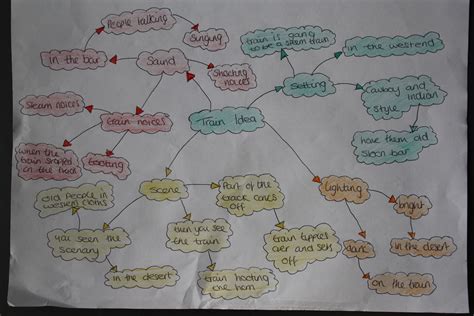 People talking
Singing
in the bar
Sound
Shooting
noices
Steam noices
train noices
when the
train stoped
on the track
tooting
Train Idea
train is going
to be a steem train
in the westend
Setting
Cowboy and
indian
style
have them old
Sloon bar
Scene
Part of the
track comes
off
old people in
western
You seen the
Scenary
in the desert
then you see
the train
train hooting
one horn
train tipples
over and sets
off
Lighting
bright
in the desert
dark
on the train